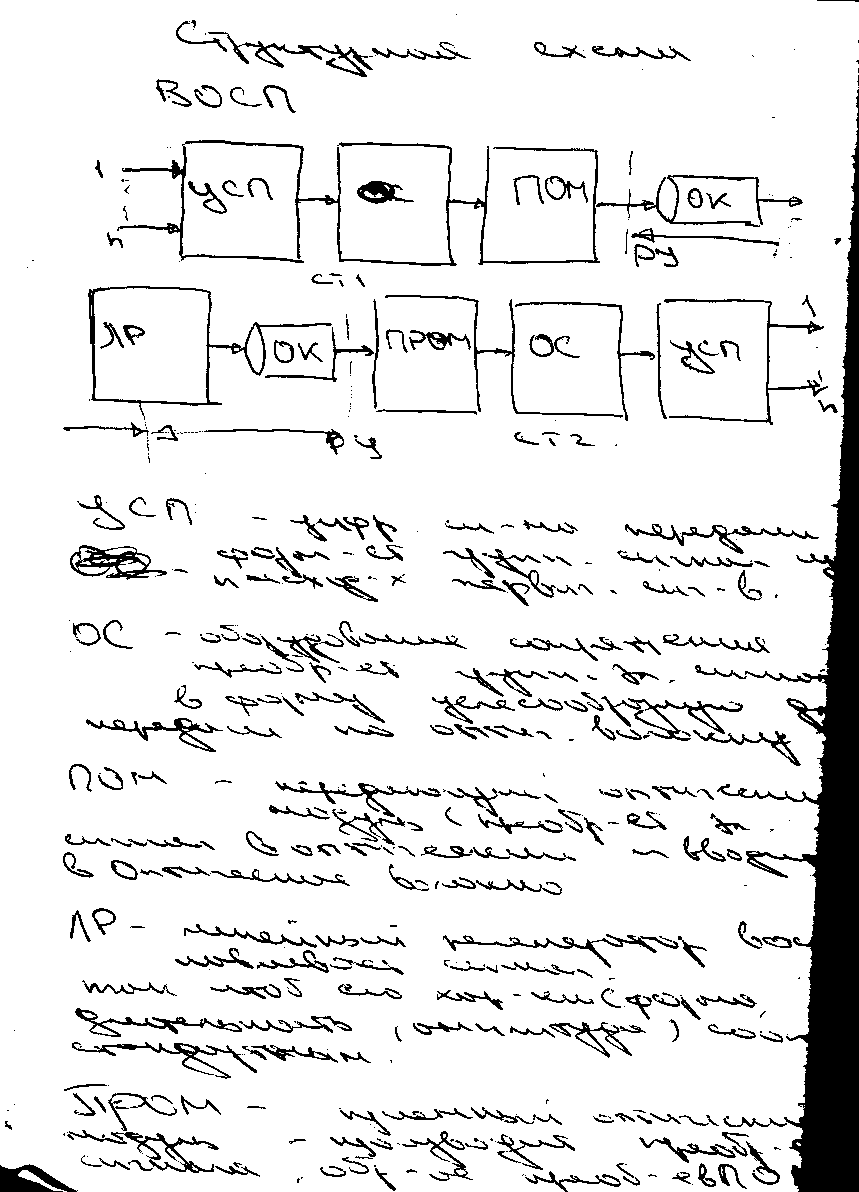 Структурная схема
ВОСП
1 УСП ПОМ ОК
n РУ
СТ1
ЛР ОК ПРОМ ОС УСП 1
n
РУ СТ2
УСП - цифр си-ма передачи
форм-ет групп. сигнал из
n исход-х первич. сиг-в.
ОС - оборудование сопряжения
преобр-ет групп. эл. сигнал
в форму целесообразную
передачи по оптич. волокну
ПОМ - передающий оптический
модуль (преобр-ет эл.
сигнал в оптический и вводит
в оптическое волокно
ЛР - линейный регенератор
сигнал
так чтоб его хар-ки (форма,
длительность, амплитуда)
стандартным.
ПРОМ - приемный оптический
модуль - производит преобр-
сигнала, обр-ое преоб-е в ПО